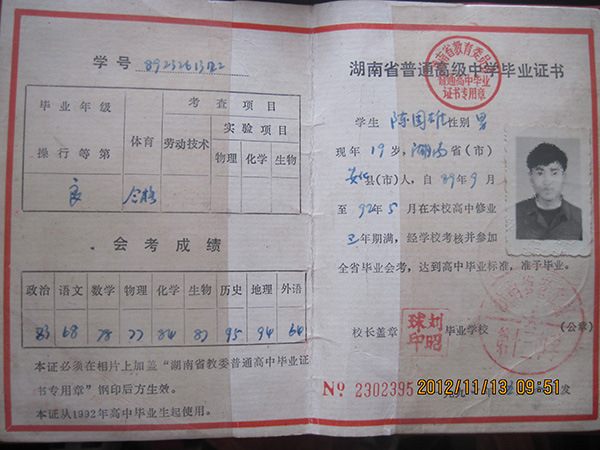 学号
毕业年级
操行等第
体育
劳动技术
考查项目
实验项目
物理 化学 生物
良 合格
会考成绩
政治 语文 数学 物理 化学 生物 历史 地理 外语
68 78 77 84 87 95 94 64
本证必须在相片上加盖“湖南省教委普通高中毕业证
书专用章”钢印后方生效。
本证从1992年高中毕业生起使用。
湖南省普通高级中学毕业证书
湖南省教育委员会
普通高中毕业
证书专用章
学生 陈国雄 性别 男
现年 19 岁，湖南 省(市)
安化 县(市)人，自 89 年 9 月
至 92 年 5 月在本校高中修业
三 年期满，经学校考核并参加
全省毕业会考，达到高中毕业标准，准予毕业。
校长盖章
刘昭球印
毕业学校 (公章)
№ 2302395
发
2012/11/13 09:51